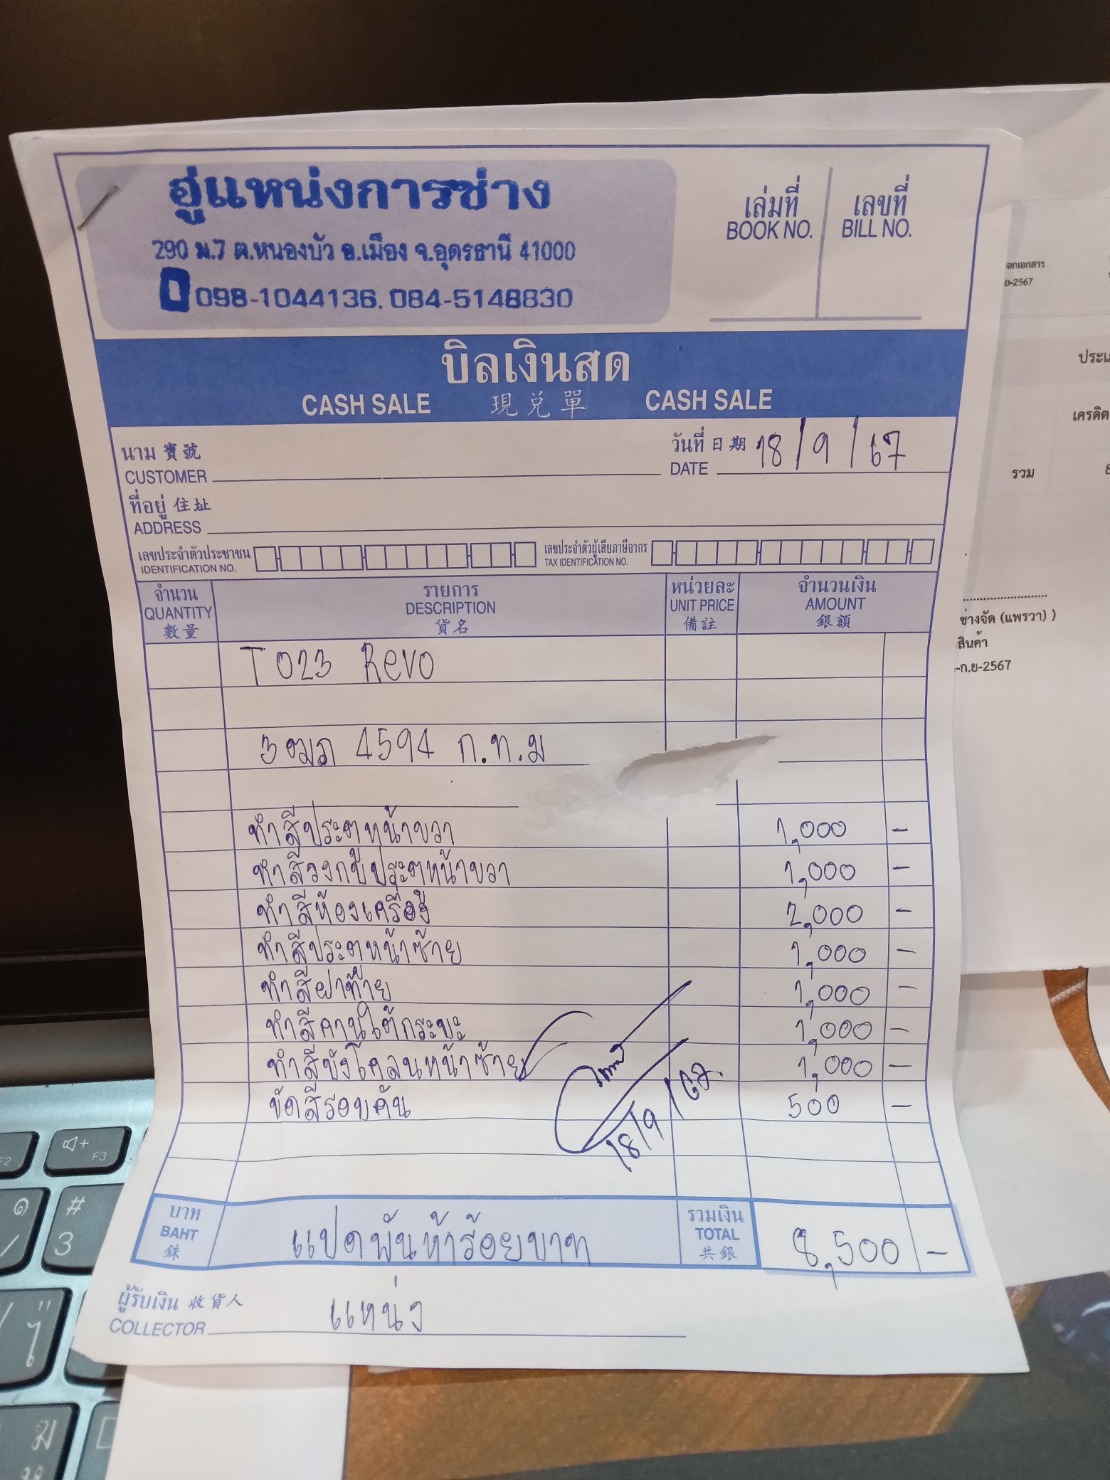 อู่แหน่งการช่าง
290 ม.7 ต.หนองบัว อ.เมือง จ.อุดรธานี 41000
098-1044136, 084-5148830
เล่มที่ เลขที่
BOOK NO. BILL NO.
บิลเงินสด
CASH SALE 現兌單 CASH SALE
นาม 寶號
CUSTOMER
วันที่ 日期 18/9/67
DATE
ที่อยู่ 住址
ADDRESS
เลขประจำตัวประชาชน
IDENTIFICATION NO.
เลขประจำตัวผู้เสียภาษีอากร
TAX IDENTIFICATION NO.
จำนวน รายการ หน่วยละ จำนวนเงิน
QUANTITY DESCRIPTION UNIT PRICE AMOUNT
數量 貨名 備註 銀額
T023 Revo
3ฒภ 4594 ก.ท.ม
ทำสีประตูหน้าขวา 1,000 -
ทำสีวงกบประตูหน้าขวา 1,000 -
ทำสีห้องเครื่อง 2,000 -
ทำสีประตูหน้าซ้าย 1,000 -
ทำสีฝาท้าย 1,000 -
ทำสีคานใต้กระบะ 1,000 -
ทำสีบังโคลนหน้าซ้าย 1,000 -
ขัดสีรอบคัน 500 -
18/9/67.
บาท
BAHT
銖
แปดพันห้าร้อยบาท
รวมเงิน
TOTAL
共銀
8,500 -
ผู้รับเงิน 收貨人
COLLECTOR
แหน่ง
-2567
เครดิต
รวม
ช่างจัด (แพรวา) )
สินค้า
-ก.ย-2567
F3
#
3